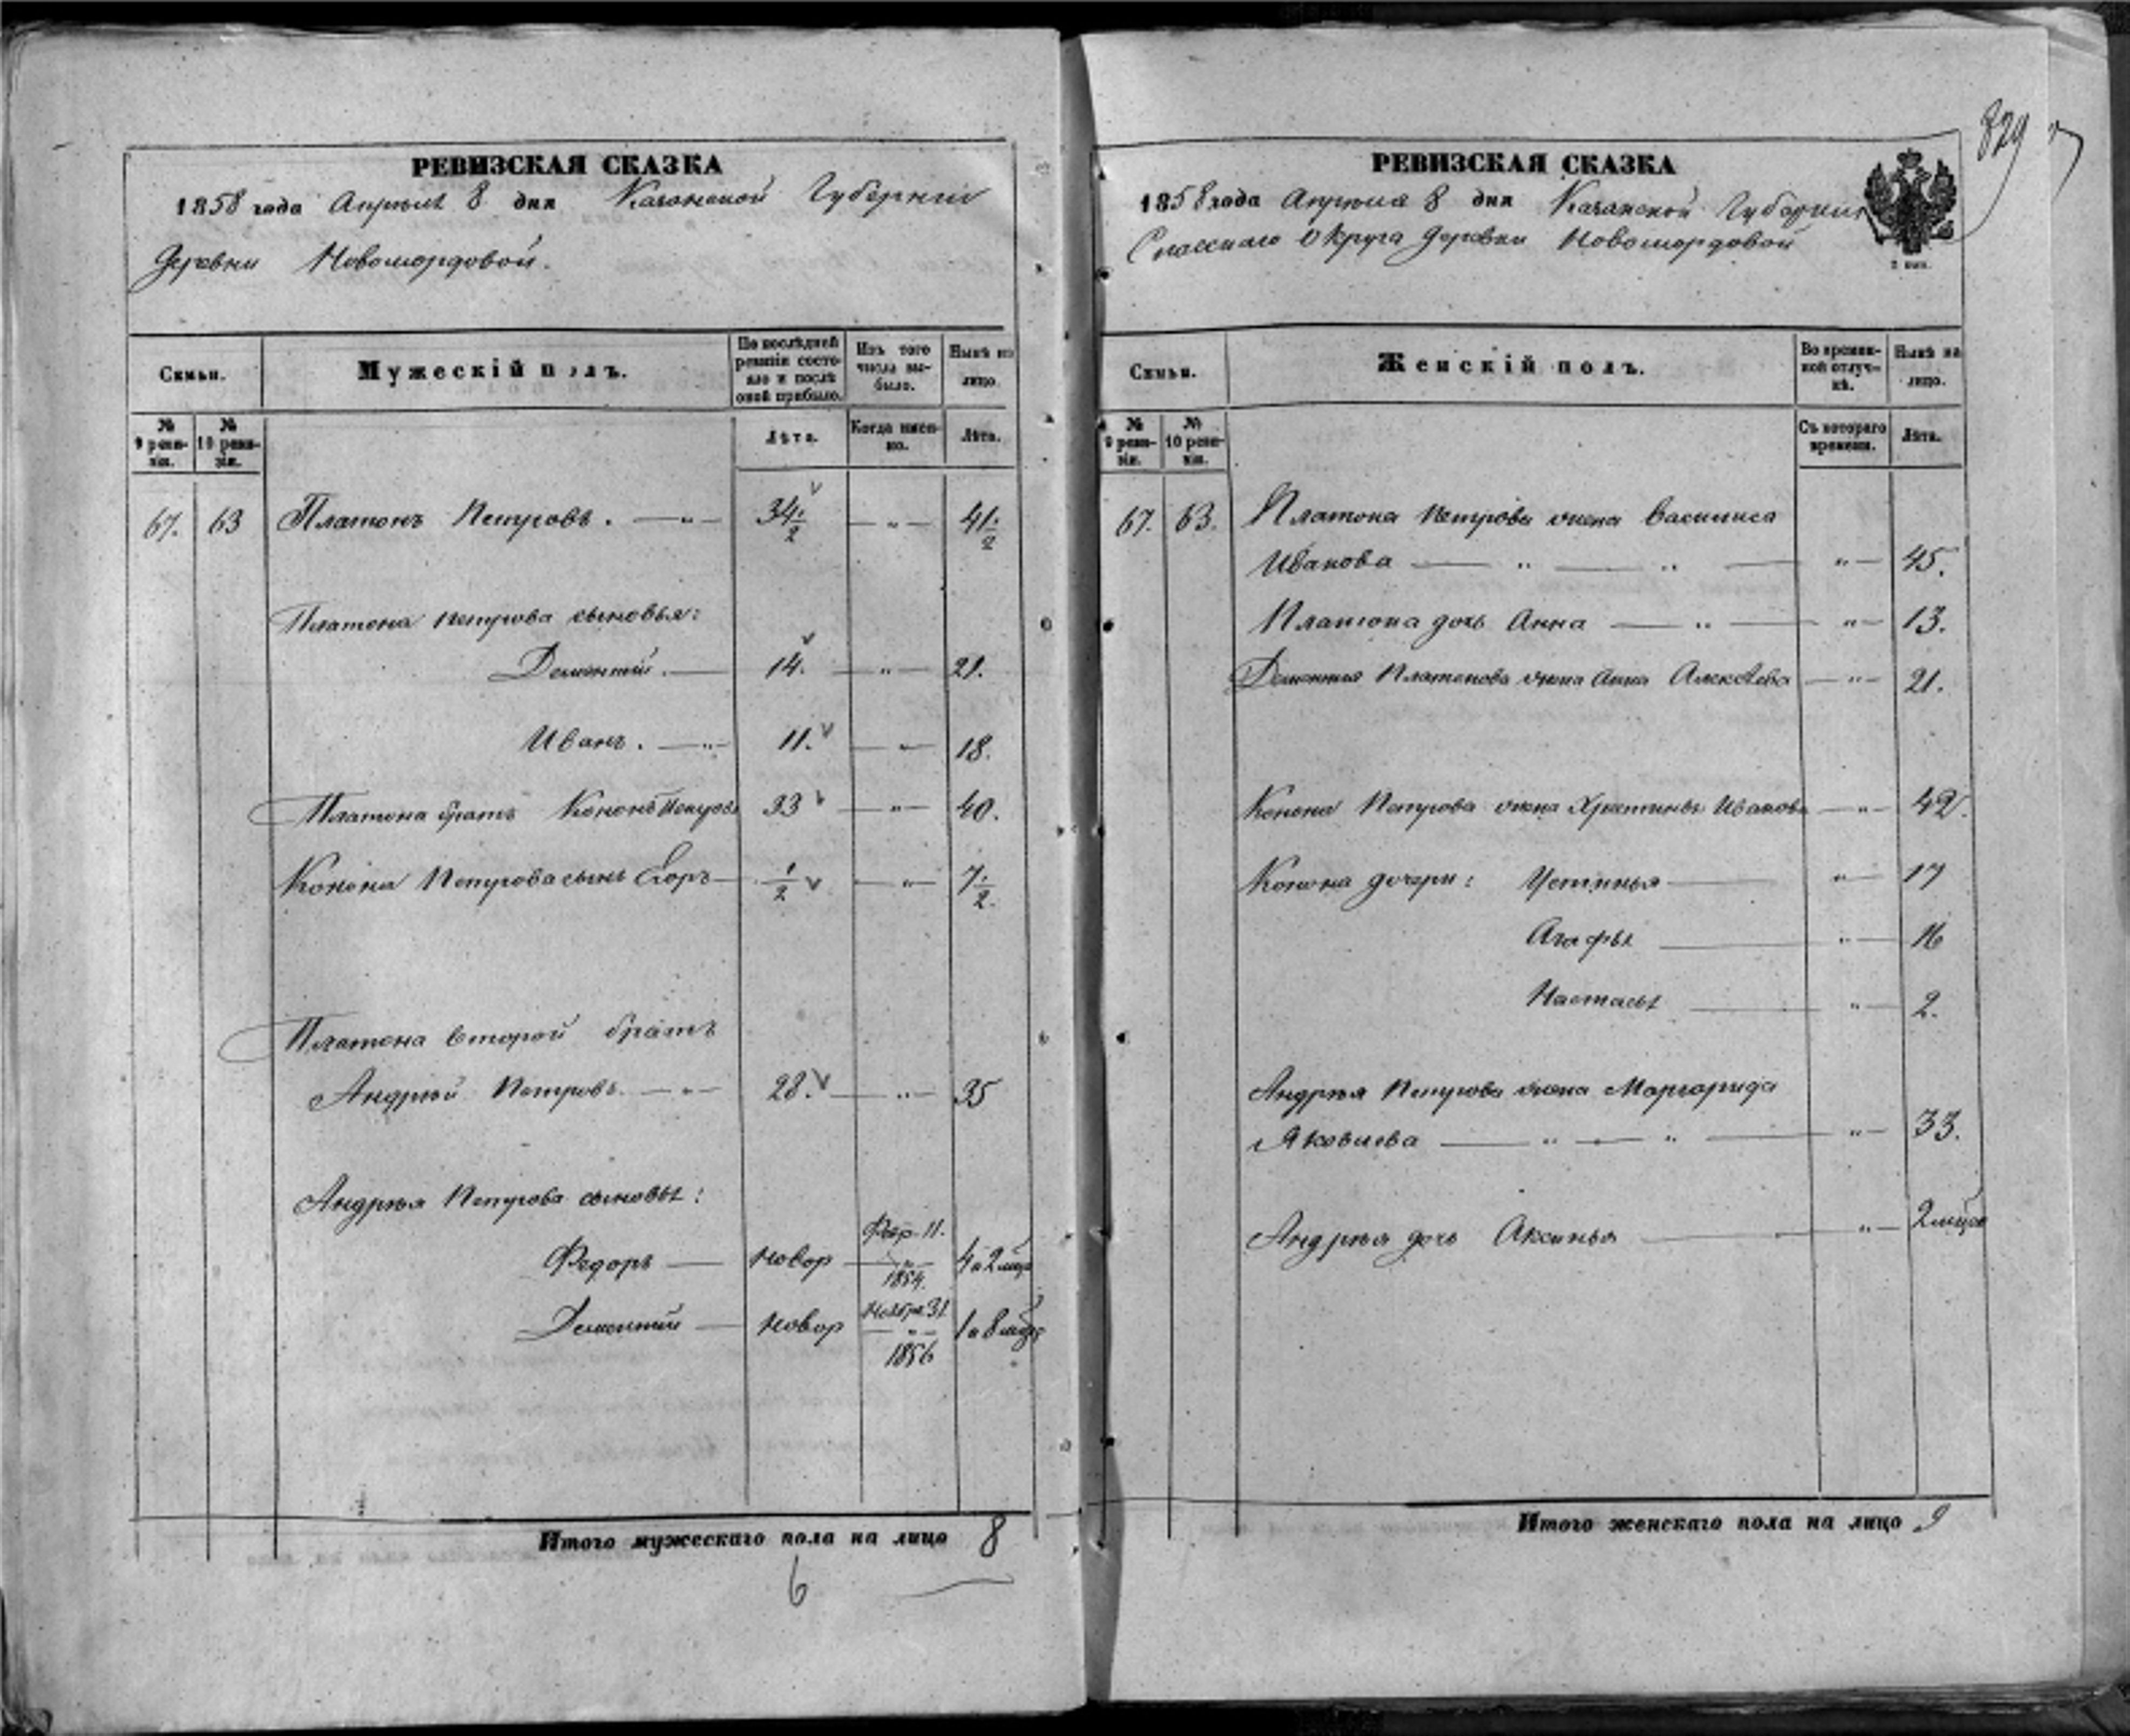 РЕВИЗСКАЯ СКАЗКА
1858 года Апреля 8 дня Казанской Губернии
Деревни Новомордовой.
Семьи.
Мужескій полъ.
По послѣдней ревизіи состояло и послѣ оной прибыло.
Изъ того числа выбыло.
Нынѣ на лицо.
№ 9 ревизіи.
№ 10 ревизіи.
Лѣта.
Когда именно.
Лѣта.
67. 63 Платонъ Петровъ. — " — 34 1/2 — " — 41 1/2
Платона Петрова сыновья:
Дементій. — 14. — " — 21.
Иванъ. — " — 11. — " — 18.
Платона братъ Кононъ Петровъ 33 — " — 40.
Конона Петрова сынъ Егоръ — 1/2 — " — 7 1/2.
Платона второй братъ
Андрей Петровъ. — " — 28. — " — 35
Андрея Петрова сыновья:
Федоръ — новор Февр. 11. 1854. 4 и 2 мца
Дементий — новор Ноября 31 1856 1 и 8 мцв
Итого мужескаго пола на лицо 8
6
829
РЕВИЗСКАЯ СКАЗКА
1858 года Апреля 8 дня Казанской Губернии
Спасскаго Округа деревни Новомордовой
Семьи.
Женскій полъ.
Во временной отлучкѣ.
Нынѣ на лицо.
№ 9 ревизіи.
№ 10 ревизіи.
Съ котораго времени.
Лѣта.
67. 63. Платона Петрова жена Василиса
Иванова — " — " — " — 45.
Платона дочь Анна — " — " — 13.
Дементия Платонова жена Анна Алексѣева — " — 21.
Конона Петрова жена Христинья Иванова — " — 42.
Конона дочери: Устинья — " — 17
Агафья — " — 16
Настасья — " — 2.
Андрея Петрова жена Маргарида
Яковлева — " — " — " — 33.
Андрея дочь Аксинья — " — 2 мцов
Итого женскаго пола на лицо 9